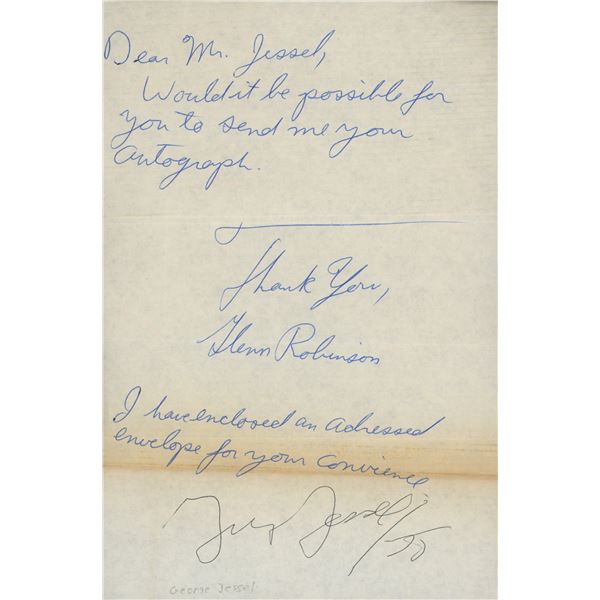 Dear Mr. Jessel,
Would it be possible for
you to send me your
autograph.
Thank You,
Glenn Robinson
I have enclosed an adressed
envelope for your convience
Jessel
George Jessel